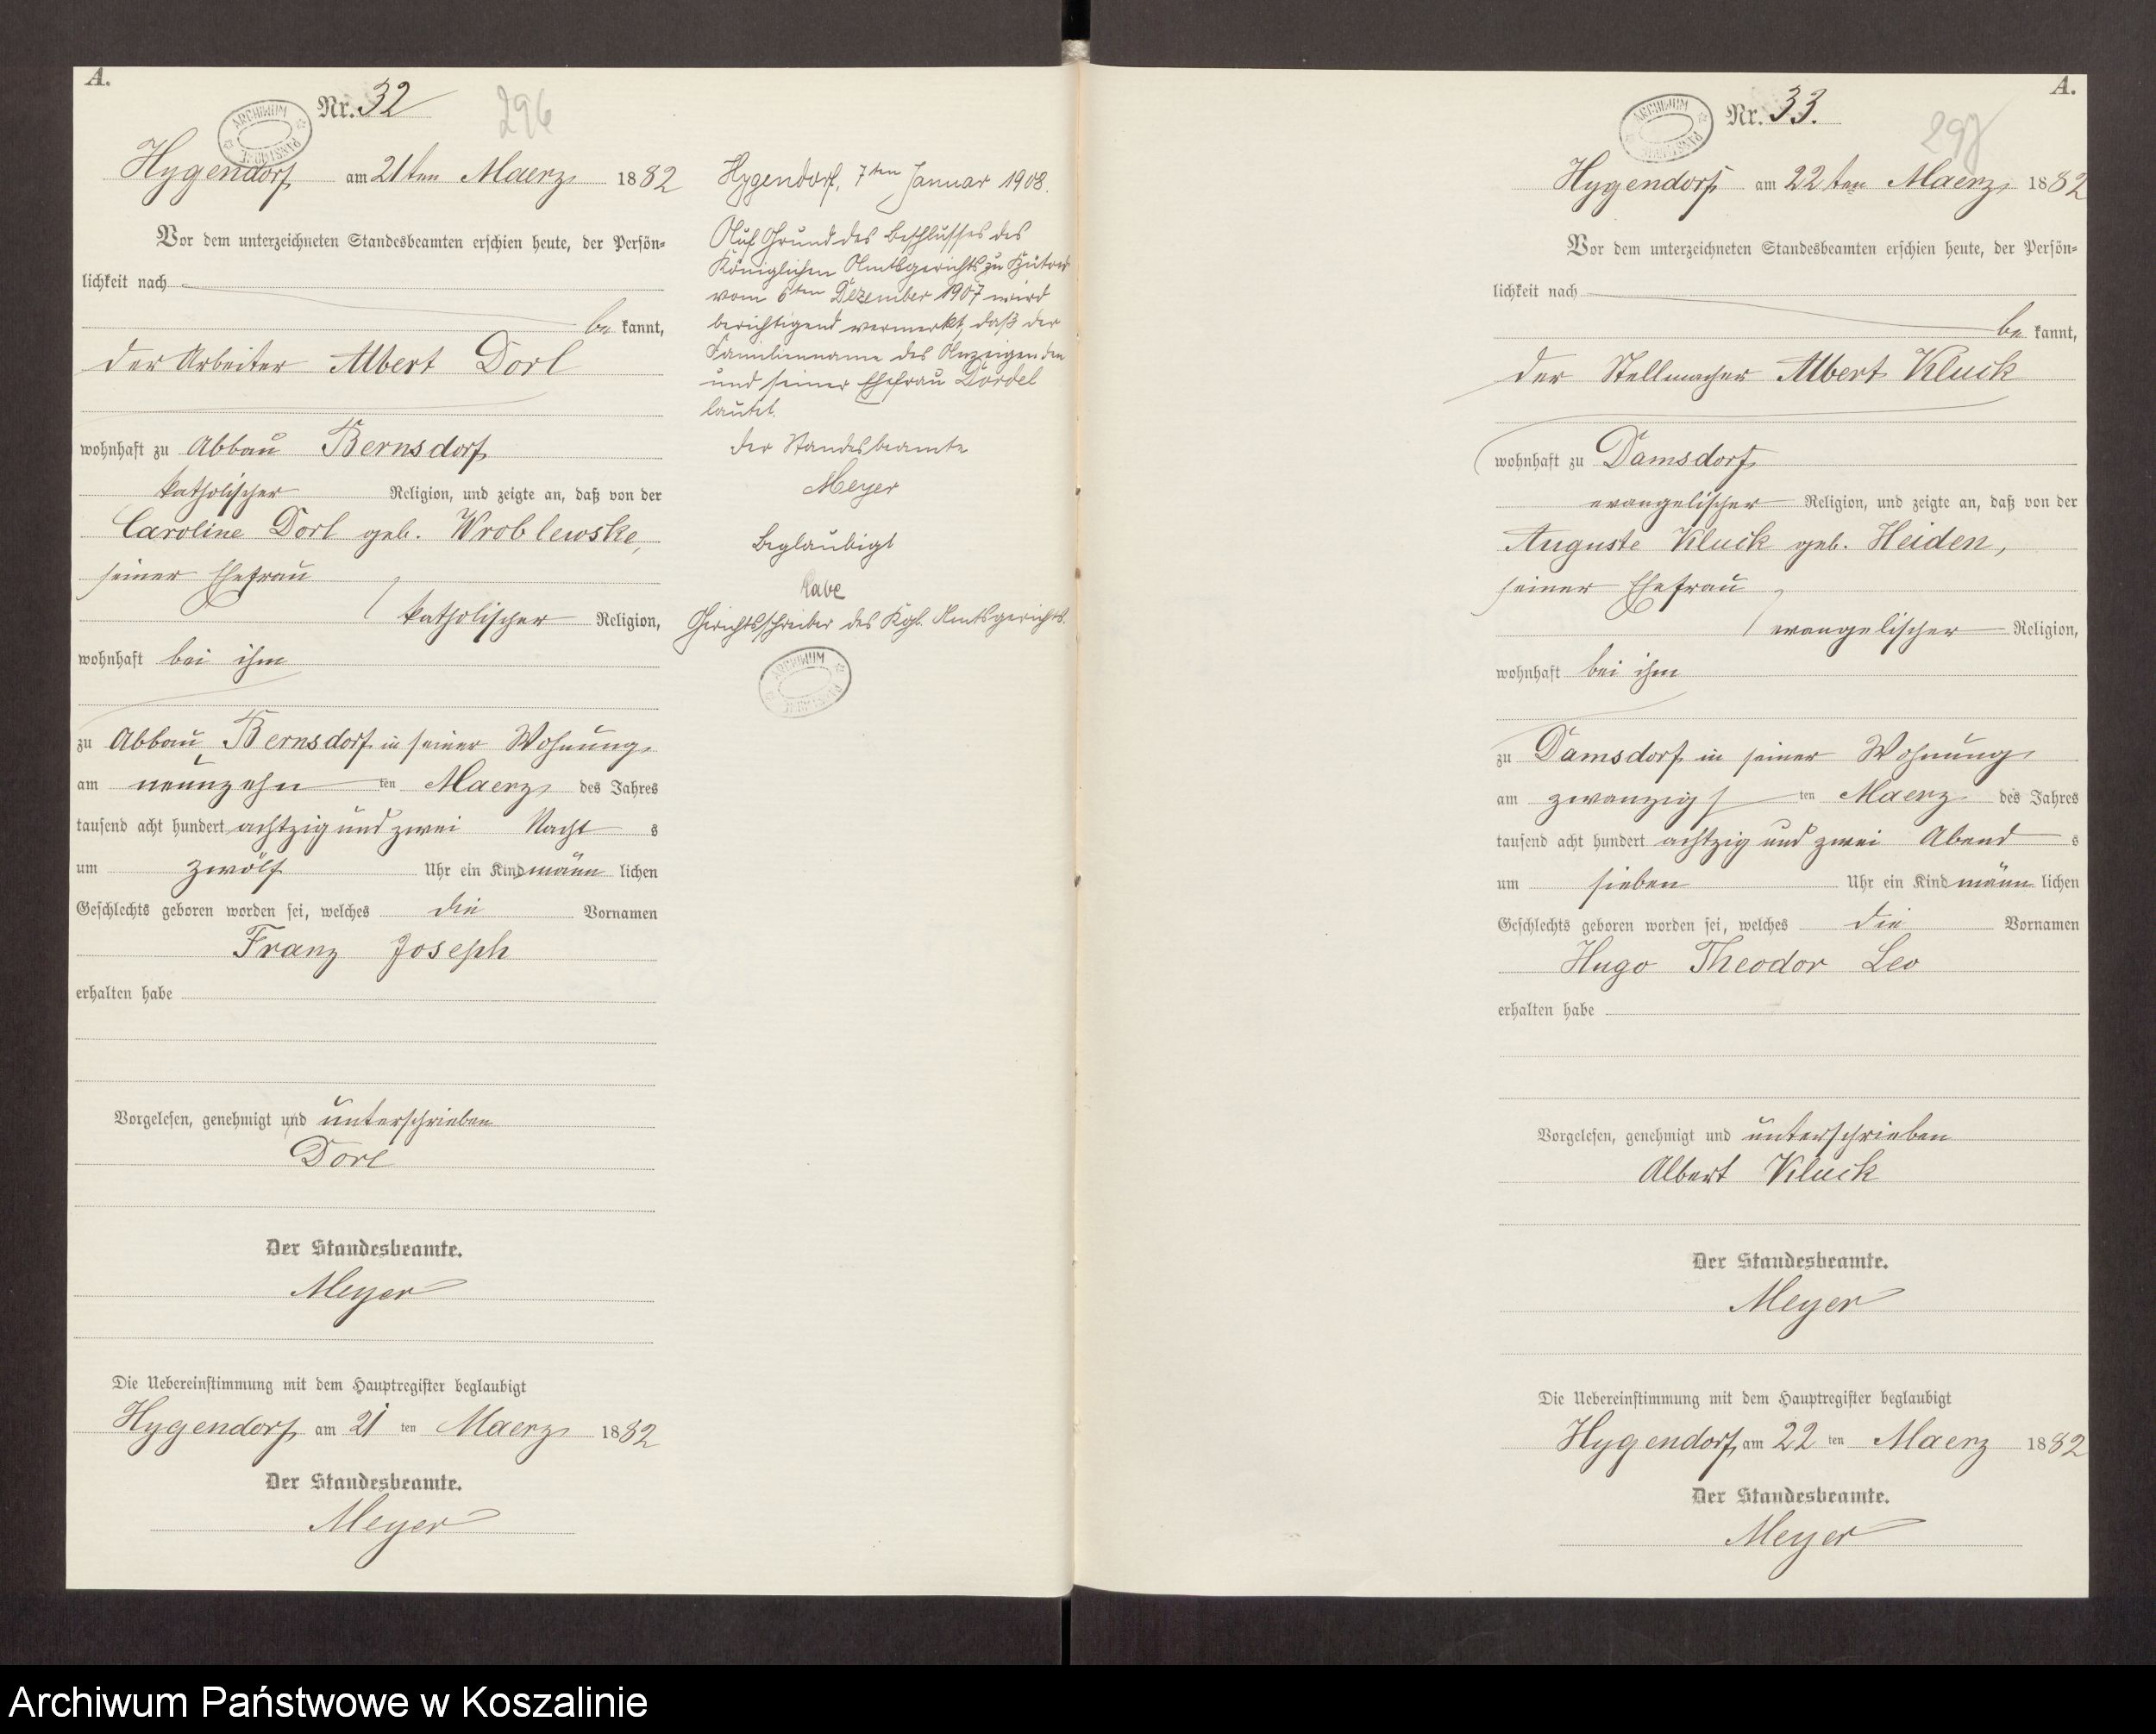 A.
Nr. 32
296
ARCHIWUM PAŃSTWOWE
Hygendorf am 21ten Maerz 1882
Vor dem unterzeichneten Standesbeamten erschien heute, der Persön-
lichkeit nach
be kannt,
der Arbeiter Albert Dorl
wohnhaft zu Abbau Bernsdorf
katholischer Religion, und zeigte an, daß von der
Caroline Dorl geb. Wroblewske,
seiner Ehefrau
katholischer Religion,
wohnhaft bei ihm
zu Abbau Bernsdorf in seiner Wohnung
am neunzehn ten Maerz des Jahres
tausend acht hundert achtzig und zwei Nacht s
um zwölf Uhr ein Kind männ lichen
Geschlechts geboren worden sei, welches die Vornamen
Franz Joseph
erhalten habe
Vorgelesen, genehmigt und unterschrieben
Dorl
Der Standesbeamte.
Meyer
Die Uebereinstimmung mit dem Hauptregister beglaubigt
Hygendorf am 21 ten Maerz 1882
Der Standesbeamte.
Meyer
Hygendorf, 7ten Januar 1908.
Auf Grund des Beschlusses des
Königlichen Amtsgerichts zu Bütow
vom 6ten Dezember 1907 wird
berichtigend vermerkt, daß der
Familienname des Anzeigenden
und seiner Ehefrau Dordel
lautet.
Der Standesbeamte
Meyer
Beglaubigt
Labe
Gerichtsschreiber des Kgl. Amtsgerichts.
ARCHIWUM PAŃSTWOWE
A.
Nr. 33.
297
ARCHIWUM PAŃSTWOWE
Hygendorf am 22ten Maerz 1882
Vor dem unterzeichneten Standesbeamten erschien heute, der Persön-
lichkeit nach
be kannt,
der Stellmacher Albert Kluck
wohnhaft zu Damsdorf
evangelischer Religion, und zeigte an, daß von der
Auguste Kluck geb. Heiden,
seiner Ehefrau
evangelischer Religion,
wohnhaft bei ihm
zu Damsdorf in seiner Wohnung
am zwanzigs ten Maerz des Jahres
tausend acht hundert achtzig und zwei Abend s
um sieben Uhr ein Kind männ lichen
Geschlechts geboren worden sei, welches die Vornamen
Hugo Theodor Leo
erhalten habe
Vorgelesen, genehmigt und unterschrieben
Albert Kluck
Der Standesbeamte.
Meyer
Die Uebereinstimmung mit dem Hauptregister beglaubigt
Hygendorf am 22 ten Maerz 1882
Der Standesbeamte.
Meyer
Archiwum Państwowe w Koszalinie